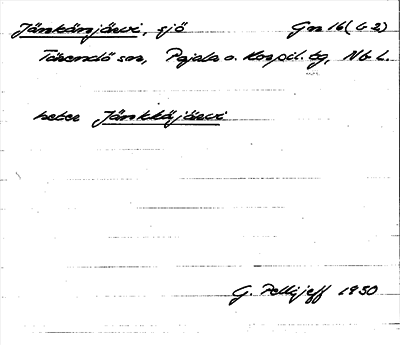 Jänkänjärvi, sjö Gn 16 (G 2)
Tärendö sn, Pajala o. Korpil. tg, Nb L.
heter Jänkkäjärvi
G. Pellijeff 1950